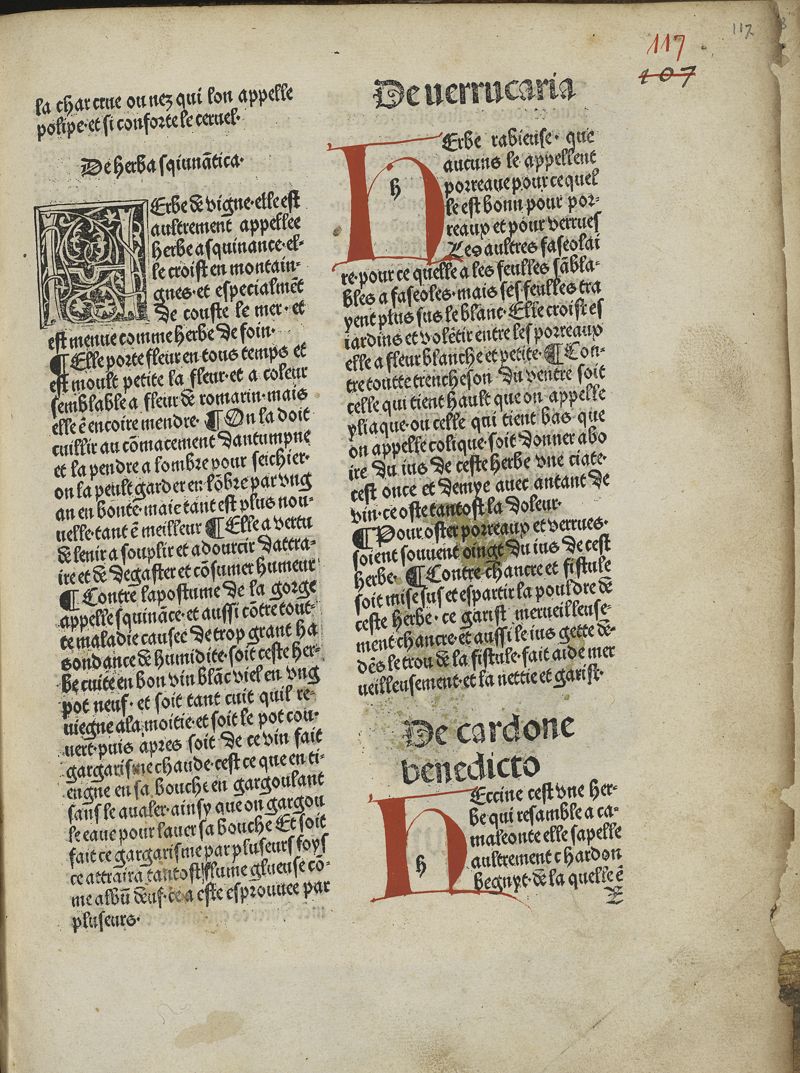 117
117
107
la char crue ou nez qui lon appelle
polipe·et si conforte le ceruel·
De herba sqinãtica·
HErbe de vigne·elle est
aultrement appellee
herbe asquinance·el-
le croist en montain-
gnes·et especialmẽt
de couste le mer·et
est menue comme herbe de foin·
¶Elle porte fleur en tous temps et
est moult petite la fleur·et a coleur
semblable a fleur de romarin·mais
elle ẽ encoire mendre·¶On la doit
cuillir au cõmacement dantumpne
et la pendre a lombre pour seichier·
on la peult garder en lõbre par vng
an en bonte·maie tant est plus nou-
uelle·tant ẽ meilleur ¶Elle a vertu
de lenir a souplir et adourcir dattra-
ire et de degaster et cõsumer humeur
¶Contre lapostume de la gorge
appelle squinãce·et aussi cõtre tout-
te maladie causee de trop grant ha
bondance de humidite·soit ceste her-
be cuite en bon vin blãc viel en vng
pot neuf·et soit tant cuit quil re-
uiegne a la moitie·et soit le pot cou-
uert·puis apres soit de ce vin fait
gargarisme chaude·cest ce que en ti-
engne en sa bouche en gargoulant
sans le aualer·ainsy que on gargou
le eaue pour lauer sa bouche Et soit
fait ce gargarisme par pluseurs foys
ce attraira tantost flume glueuse cõ-
me albũ deuf·ce a este esprouuee par
pluseurs·
De uerrucaria
h
HErbe rabieuse·que
aucuns le appellent
porreaue pour ce quel
le est bonn pour por-
reaup et pour verrues
Les aultres faseolai
re·pour ce quelle a les feulles sãbla-
bles a faseoles·mais ses feulles tra
yent plus sus le blanc·Elle croist es
iardins et volẽtir entre les porreaup
elle a fleur blanche et petite·¶Con-
tre toutte trencheson du ventre soit
celle qui tient hault que on appelle
yliaque·ou celle qui tient bas que
on appelle colique·soit donner a bo
ire du ius de ceste herbe vne ciate·
cest once et demye auec antant de
vin·ce oste tantost la doleur·
¶Pour oster porreaup et verrues·
soient souuent oingt du ius de cest
herbe·¶Contre chancre et fistule
soit mise sus et espartir la pouldre de
ceste herbe·ce garist merueilleuse-
ment chancre·et aussi le ius gette de-
dẽs le trou de la fistule·fait aide mer
ueilleusement·et la nettie et garist·
De cardone
benedicto
h
HEccine cest vne her-
be qui resamble a ca-
maleonte elle sapelle
aultrement chardon
begnyt·de la quelle ẽ